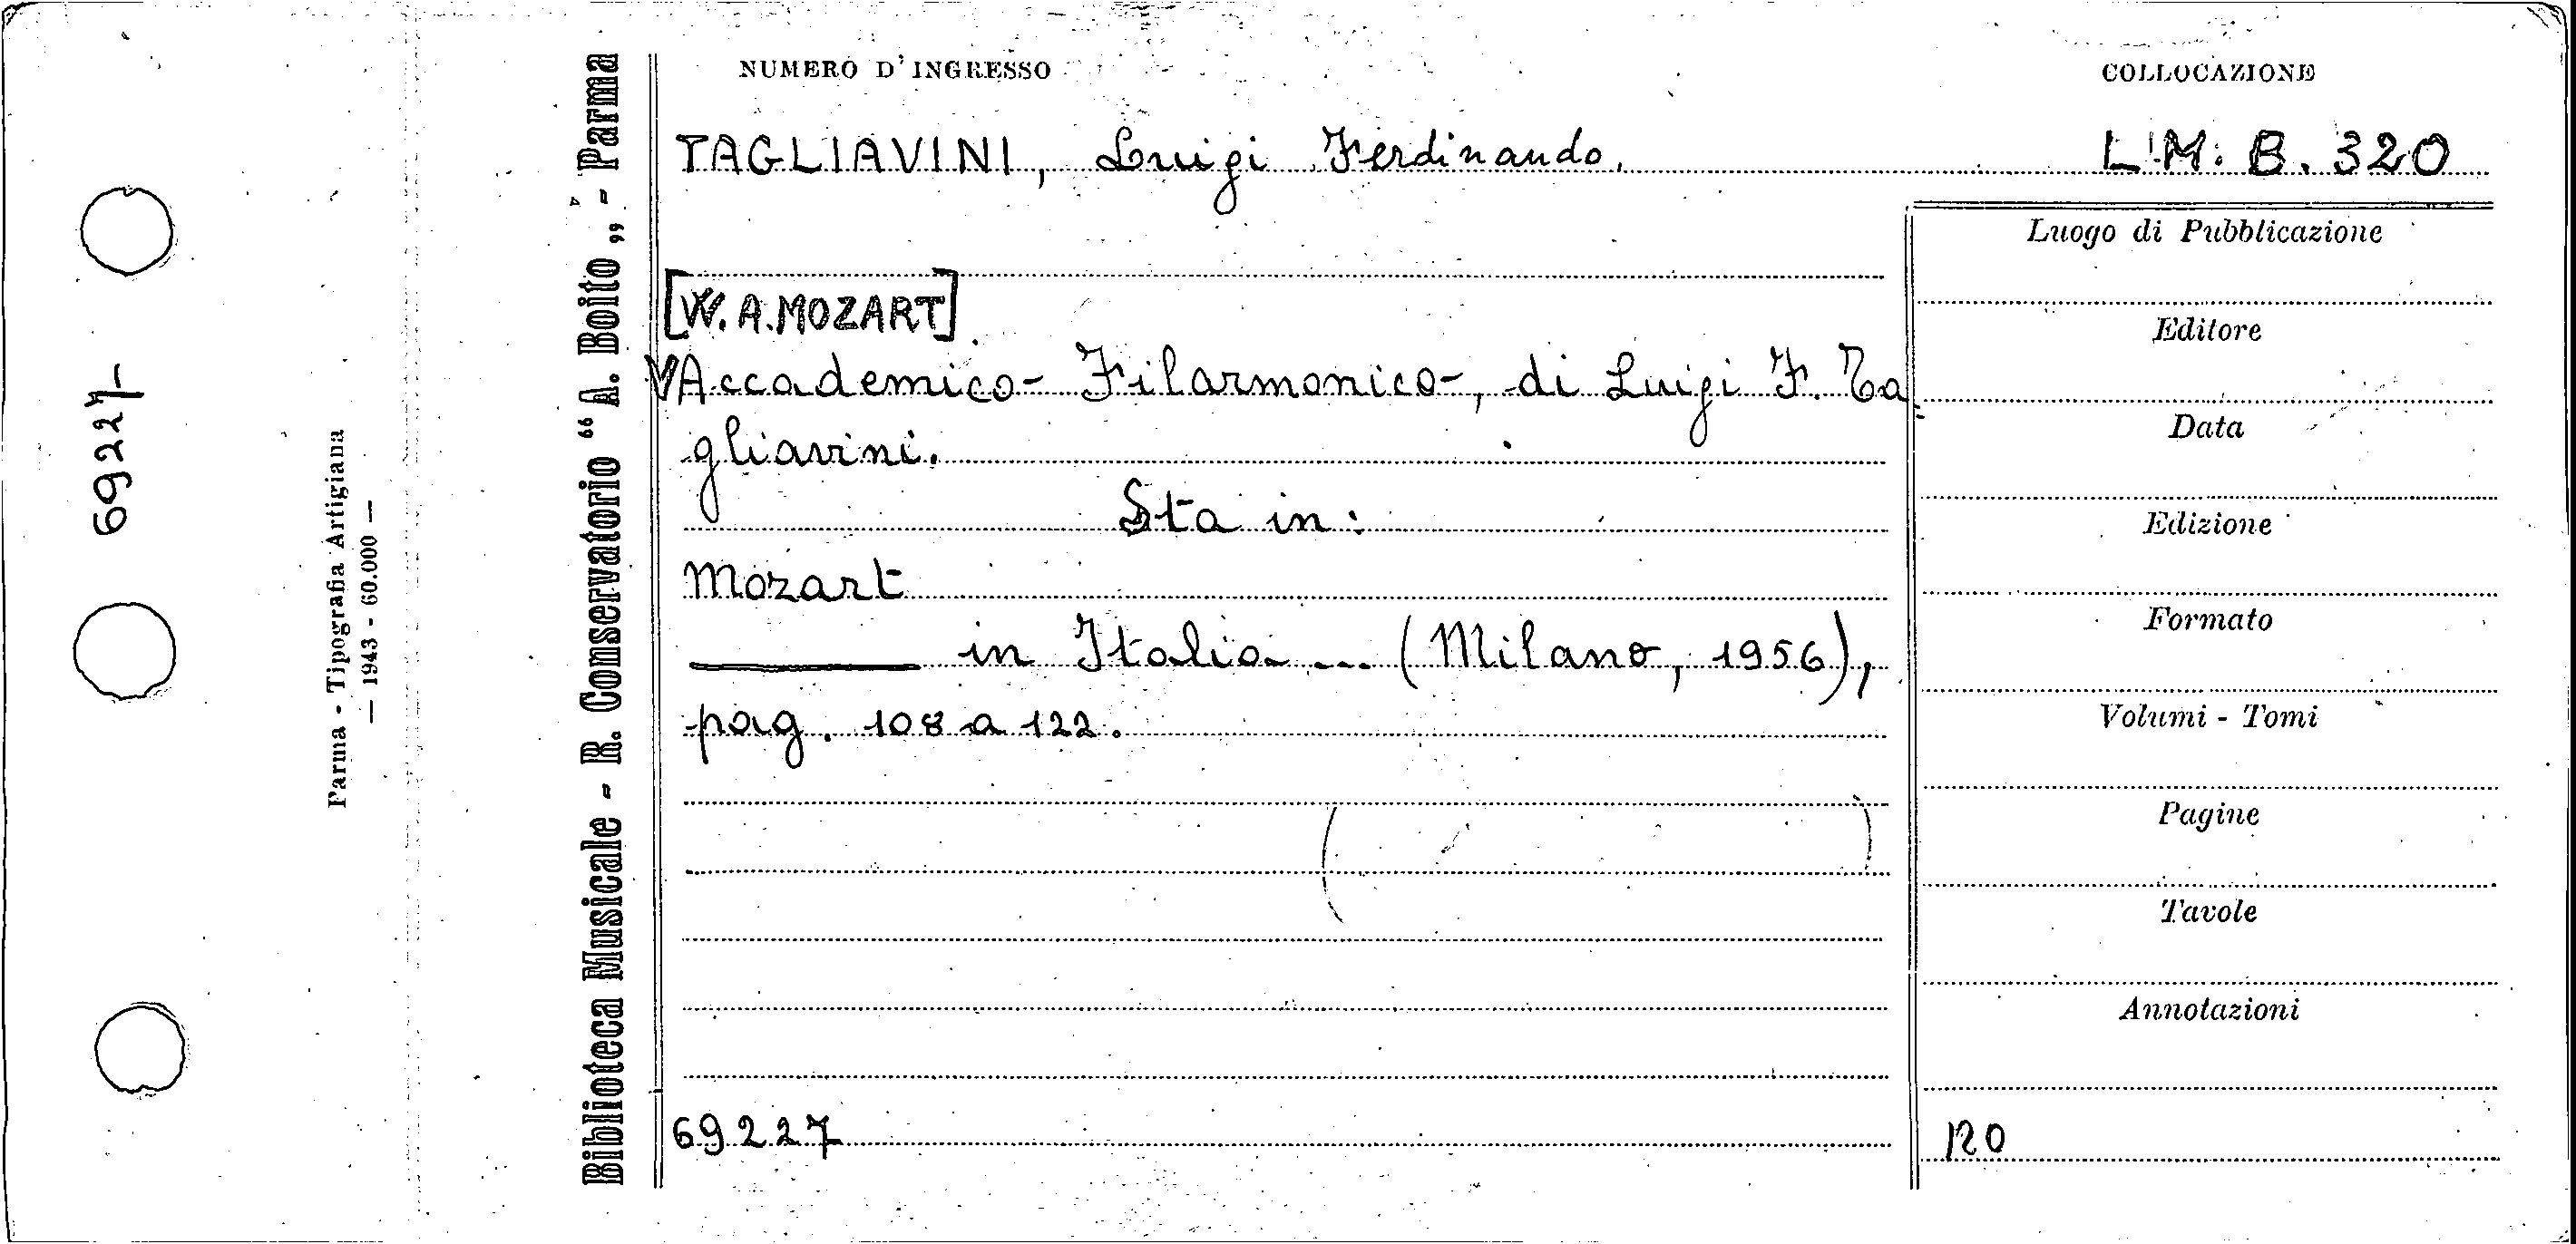 NUMERO D'INGRESSO
COLLOCAZIONE
TAGLIAVINI, Luigi Ferdinando.
L.M. B. 320
[W. A. MOZART]
Accademico Filarmonico, di Luigi F. Ta-
gliavini.
Sta in:
Mozart
——— in Italia ... (Milano, 1956),
pag. 108 a 122.
69227
Luogo di Pubblicazione
Editore
Data
Edizione
Formato
Volumi - Tomi
Pagine
Tavole
Annotazioni
Biblioteca Musicale - R. Conservatorio “A. Boito„ - Parma
Parma - Tipografia Artigiana
— 1943 - 60.000 —
69227